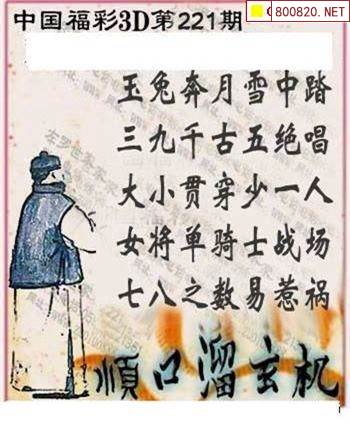 800820.NET
中国福彩3D第221期
玉兔奔月雪中踏
三九千古五绝唱
大小贯穿少一人
女将单骑士战场
七八之数易惹祸
顺口溜玄机